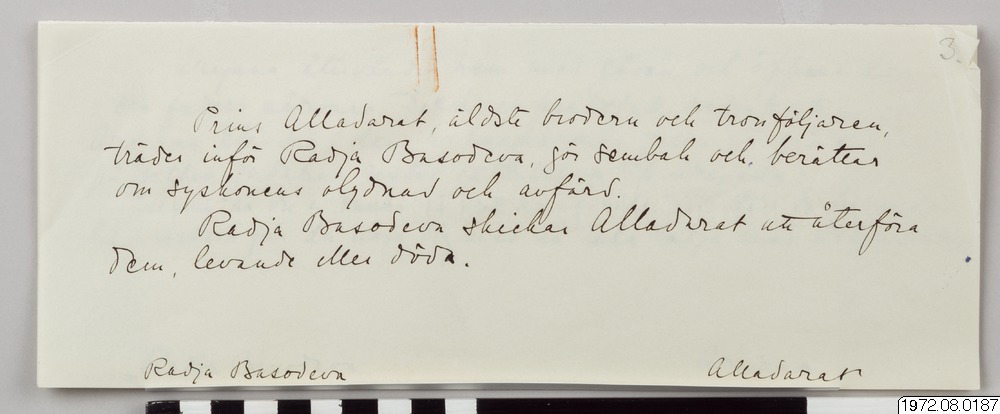 3.
Prins Alladarat, äldste brodern och tronföljaren,
träder inför Radja Basodeva, gör sembah och berättar
om syskonens olydnad och avfärd.
Radja Basodeva skickar Alladarat att återföra
dem, levande eller döda.
Radja Basodeva Alladarat
1972.08.0187